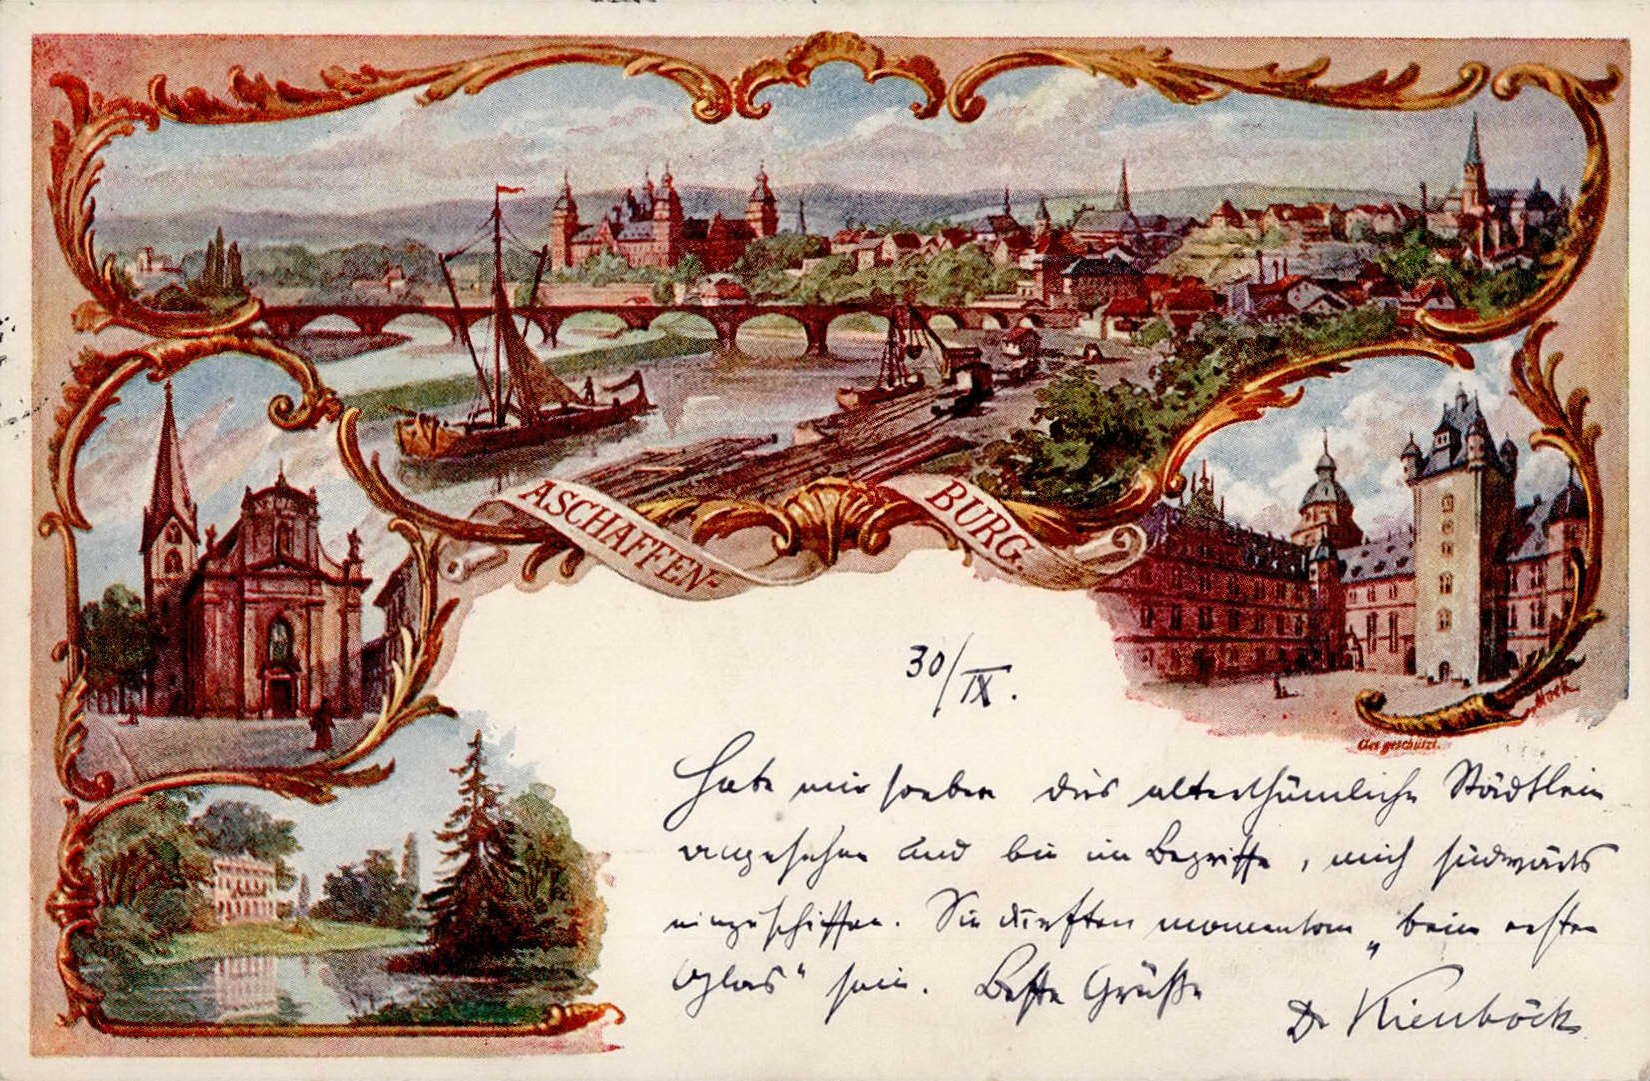 ASCHAFFEN-
BURG.
30/IX.
Habe mir soeben dies alterthümliche Städtlein
angesehen und bin im Begriffe, mich südwärts
einzuschiffen. Sie dürften momentan „beim ersten
Glas“ sein. Beste Grüße
Dr Kienböck
Mock
Ges geschützt.